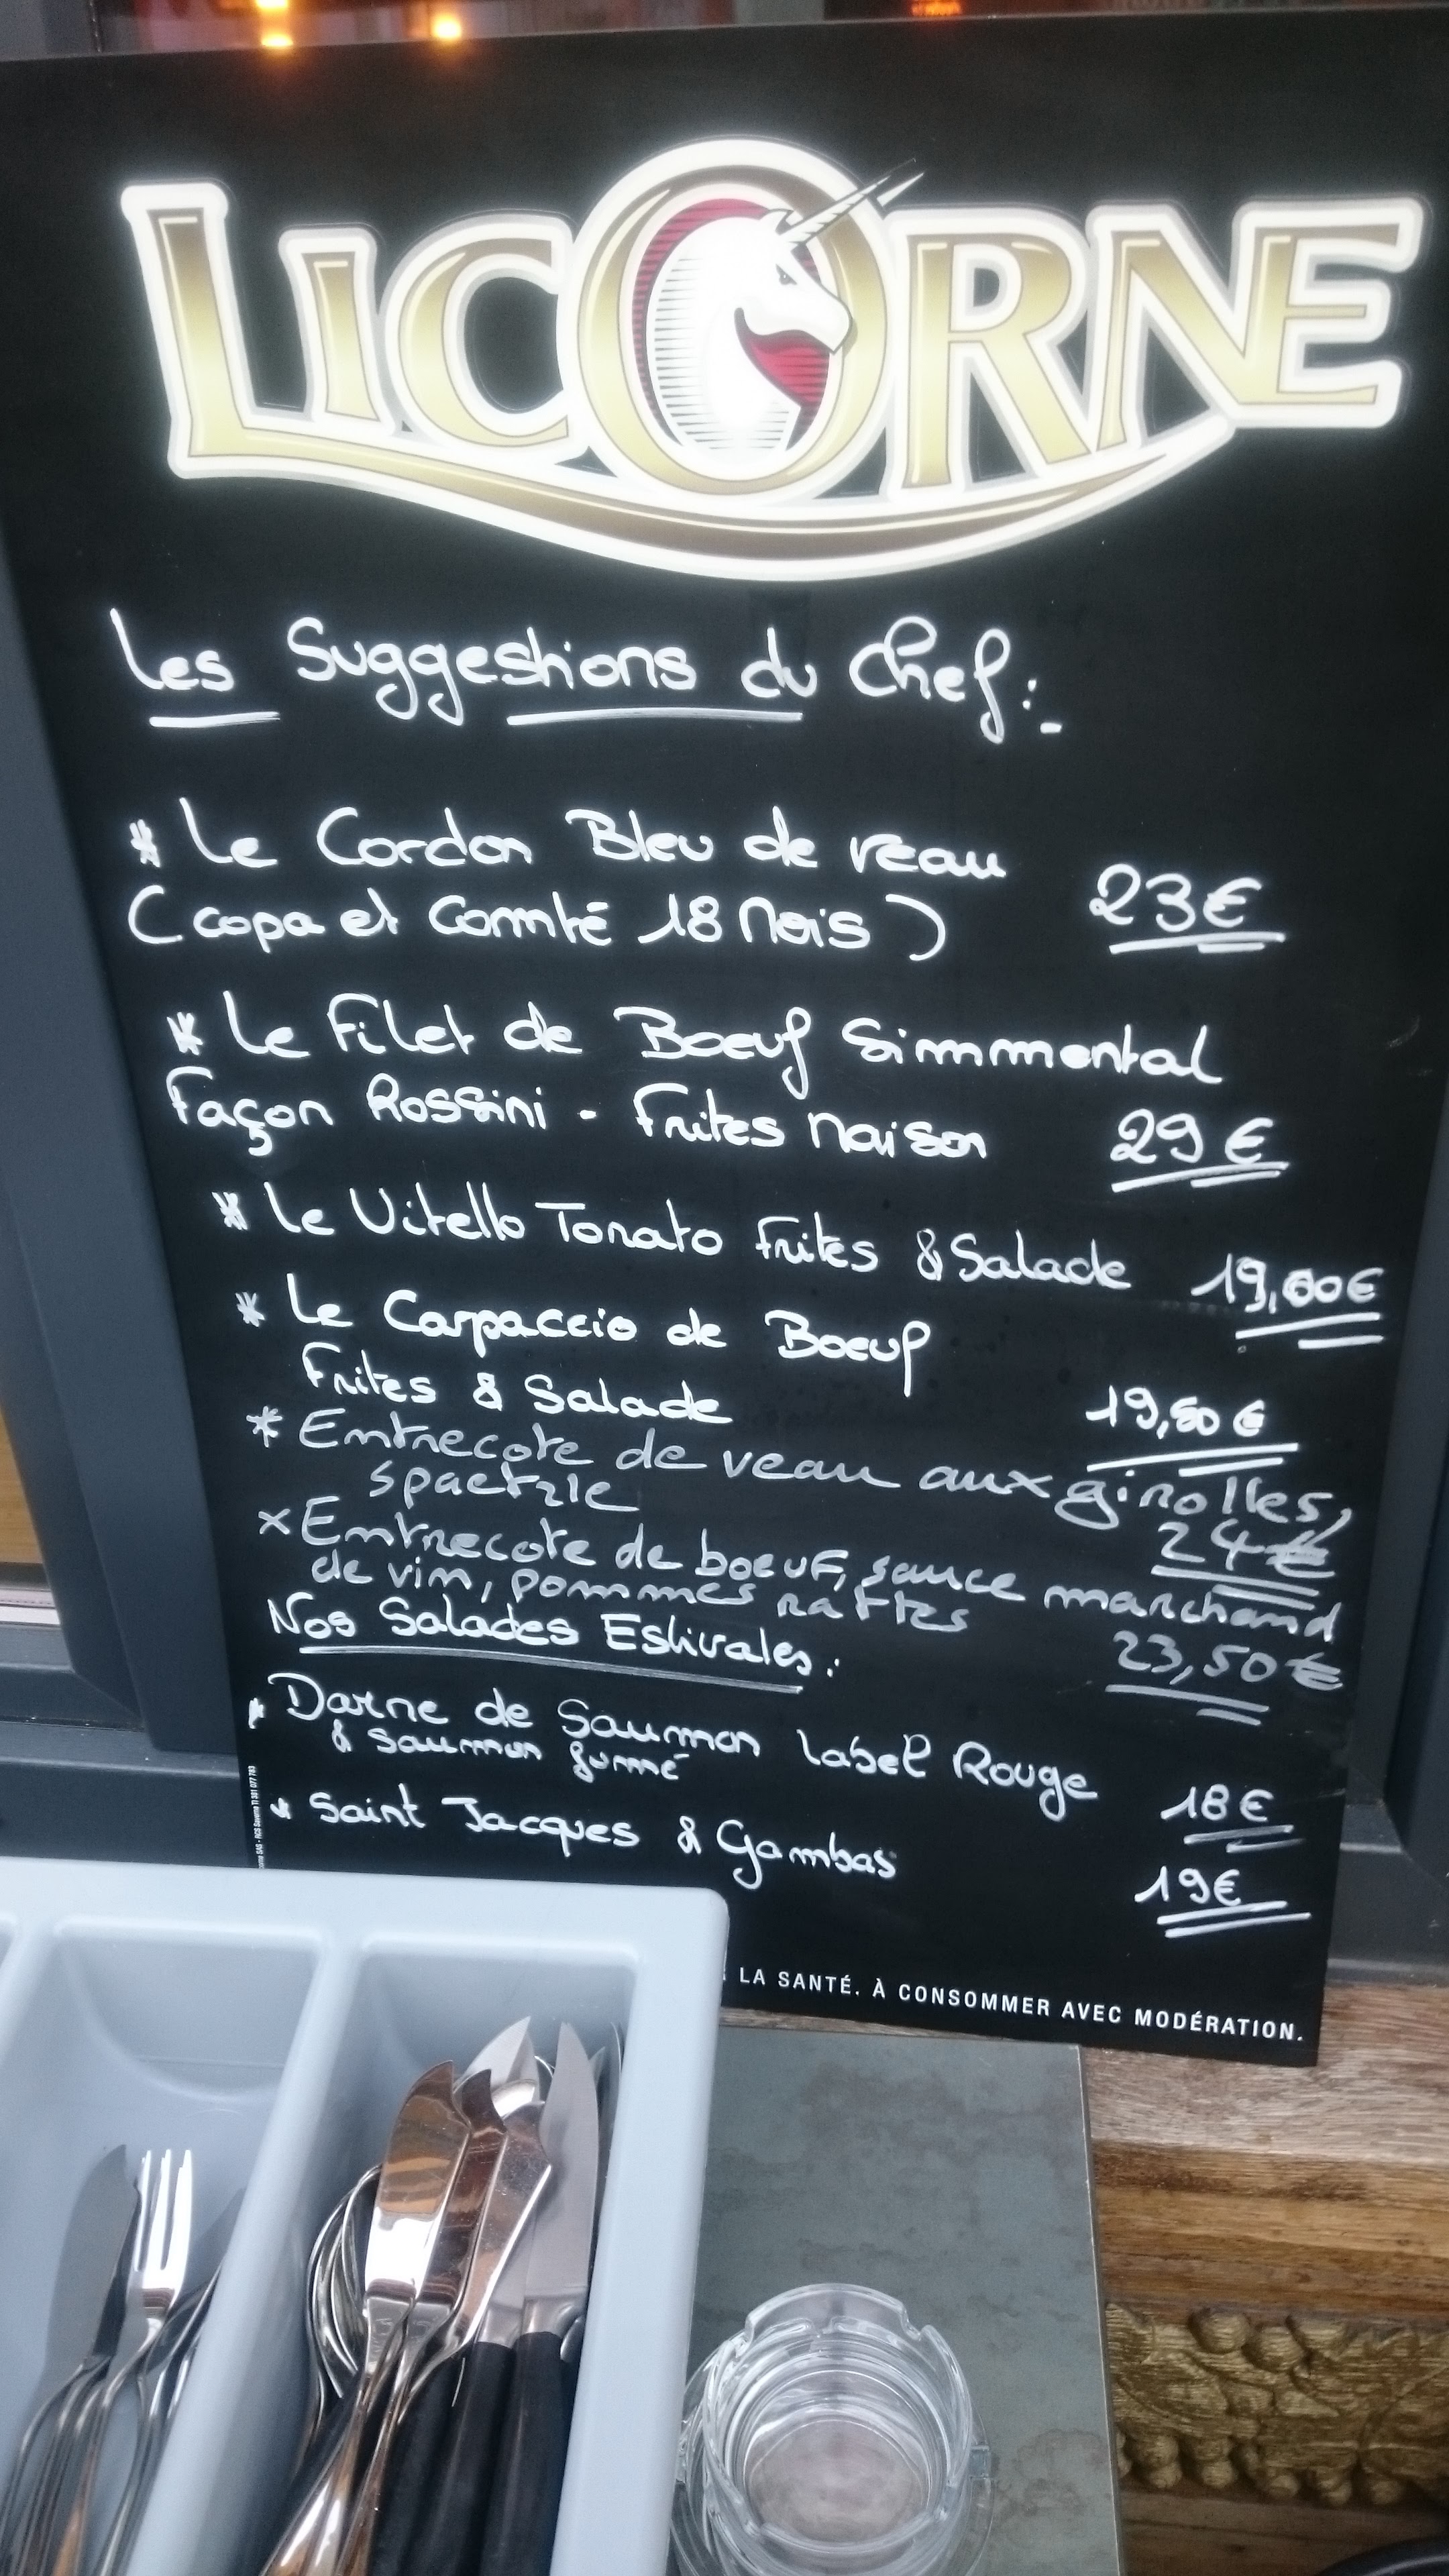 LICORNE
Les Suggestions du Chef :-
* Le Cordon Bleu de veau
(copa et Comté 18 Mois) 23€
* Le Filet de Boeuf Simmental
Façon Rossini - Frites Maison 29€
* Le Vitello Tonato Frites & Salade 19,00€
* Le Carpaccio de Boeuf
Frites & Salade 19,50€
* Entrecote de veau aux girolles,
spaetzle 24€
× Entrecote de boeuf, sauce marchand
de vin, pommes rattes 23,50€
Nos Salades Estivales :
* Darne de Saumon Label Rouge
& Saumon fumé 18€
* Saint Jacques & Gambas 19€
LA SANTÉ. À CONSOMMER AVEC MODÉRATION.